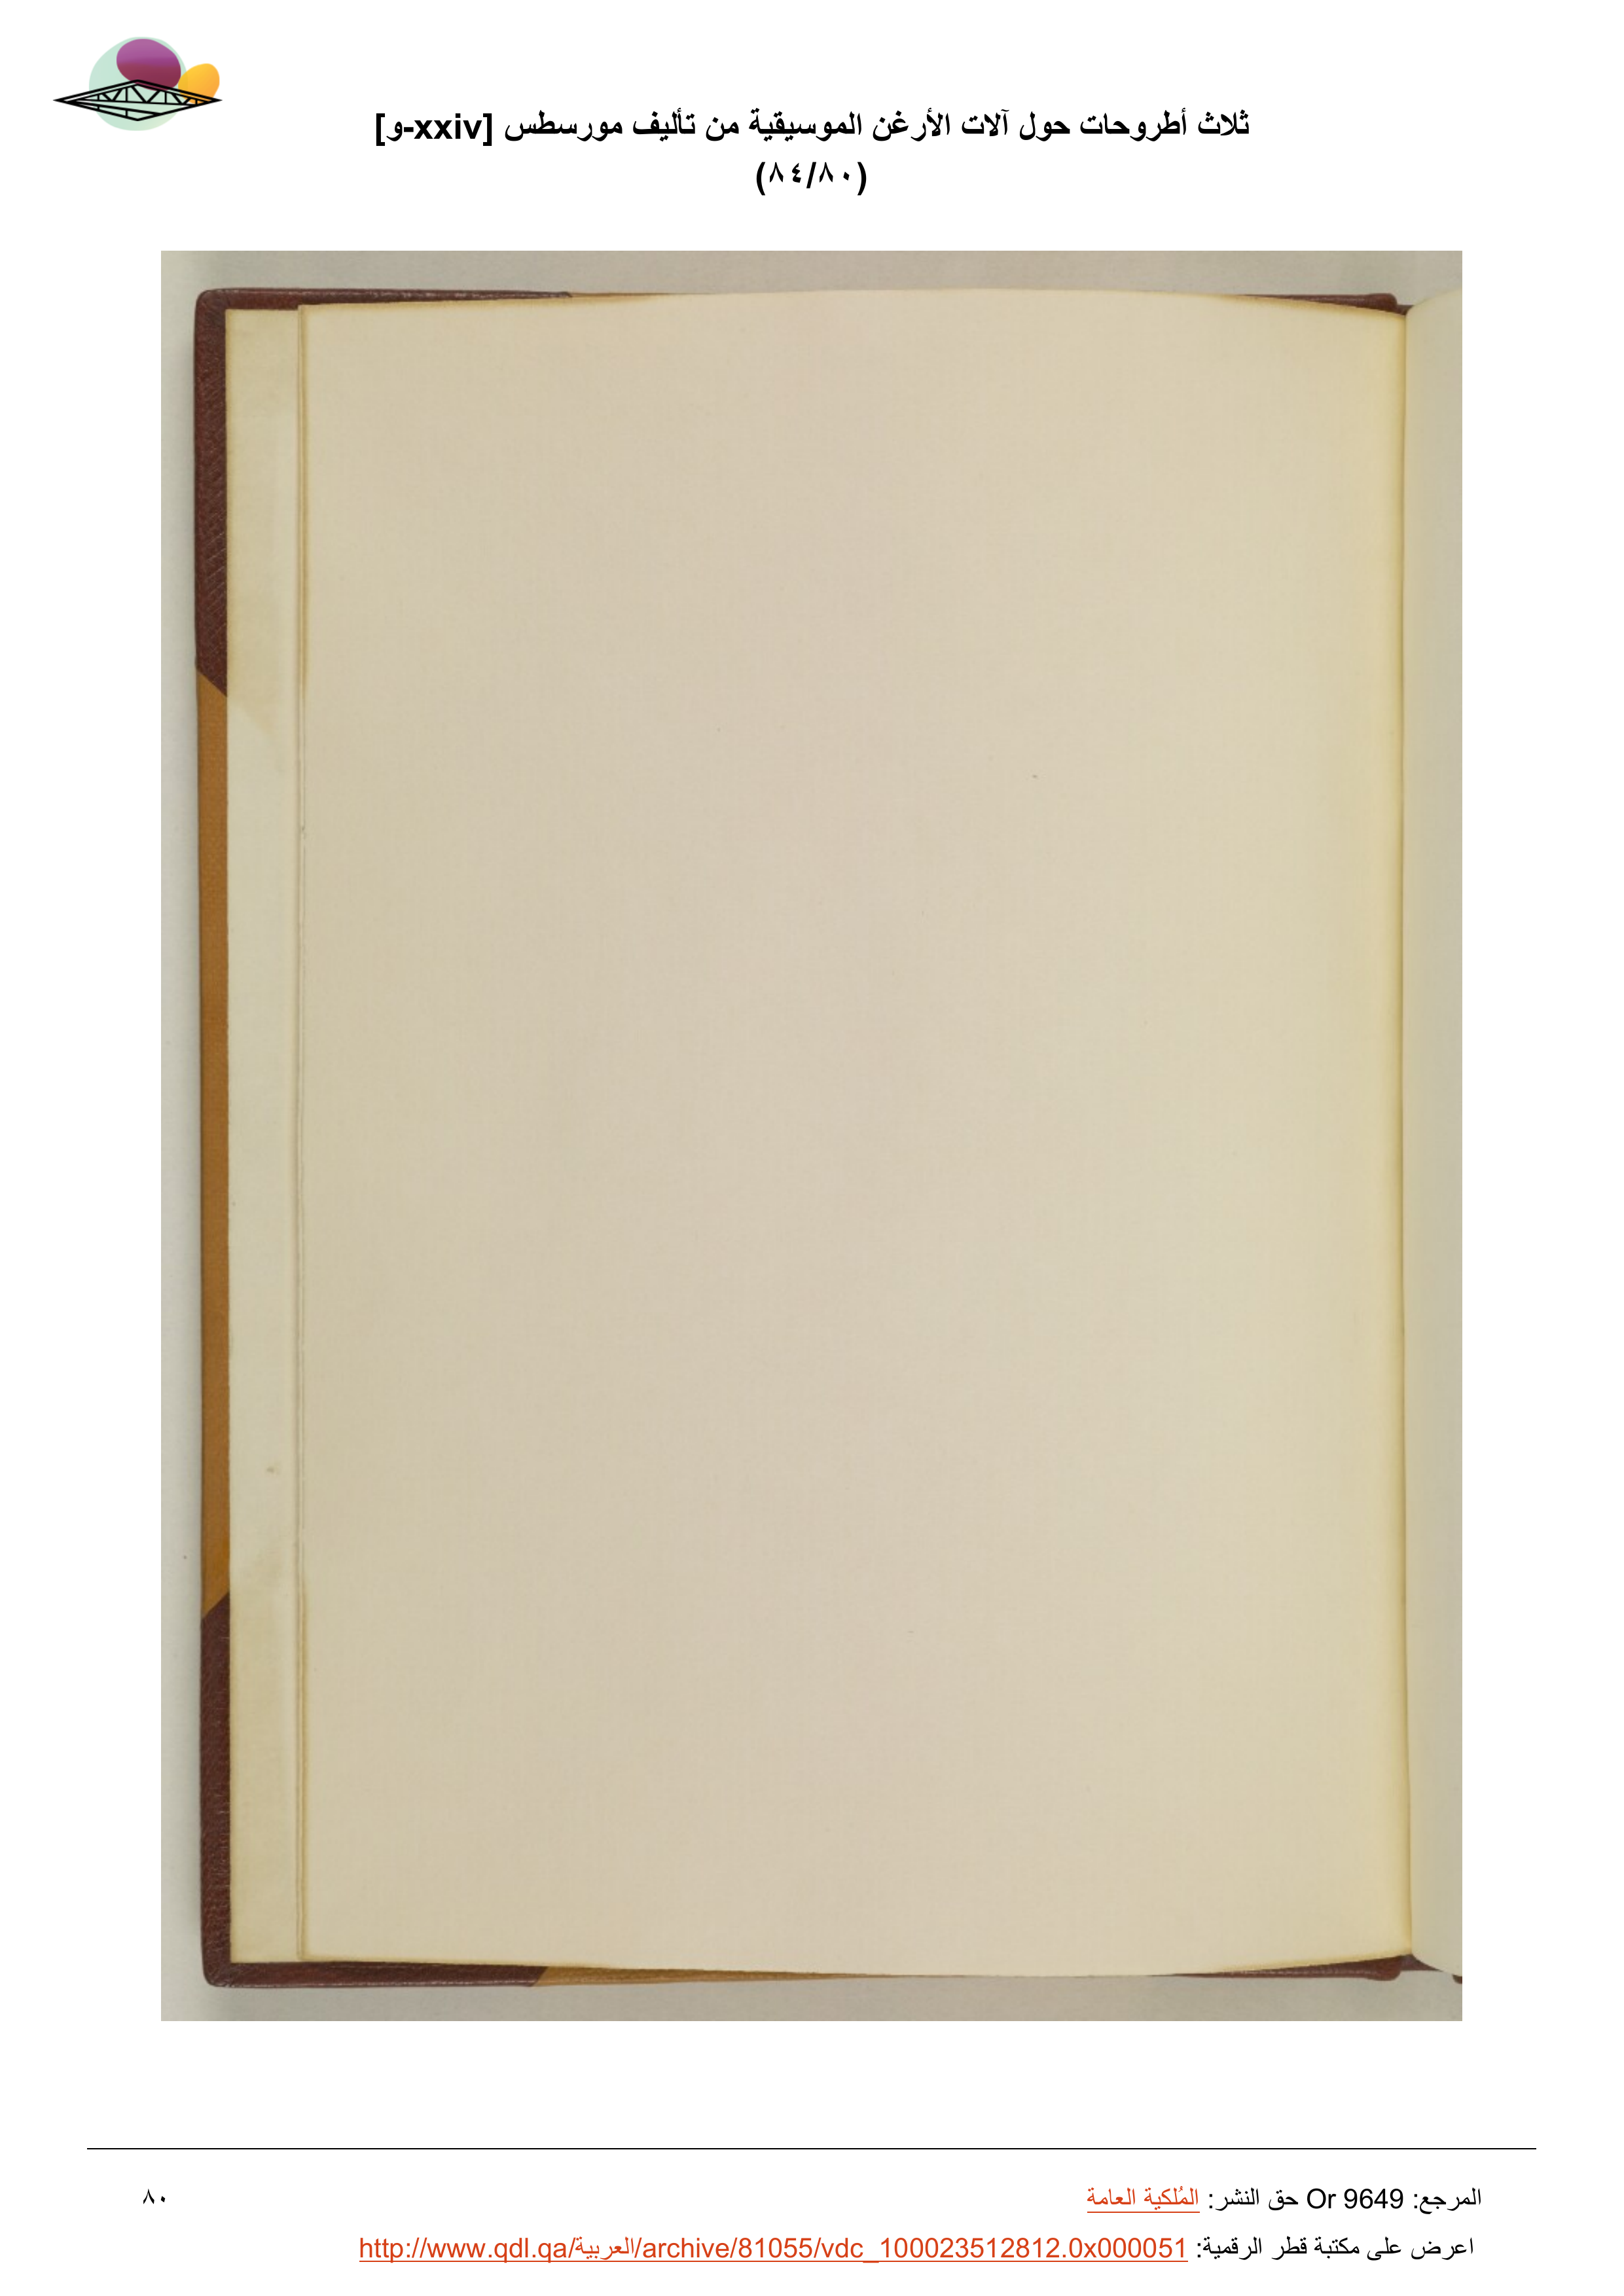 ثلاث أطروحات حول آلات الأرغن الموسيقية من تأليف مورسطس [xxiv-و]
(٨٤/٨٠)
المرجع: Or 9649 حق النشر: المُلكية العامة
٨٠
اعرض على مكتبة قطر الرقمية: http://www.qdl.qa/العربية/archive/81055/vdc_100023512812.0x000051